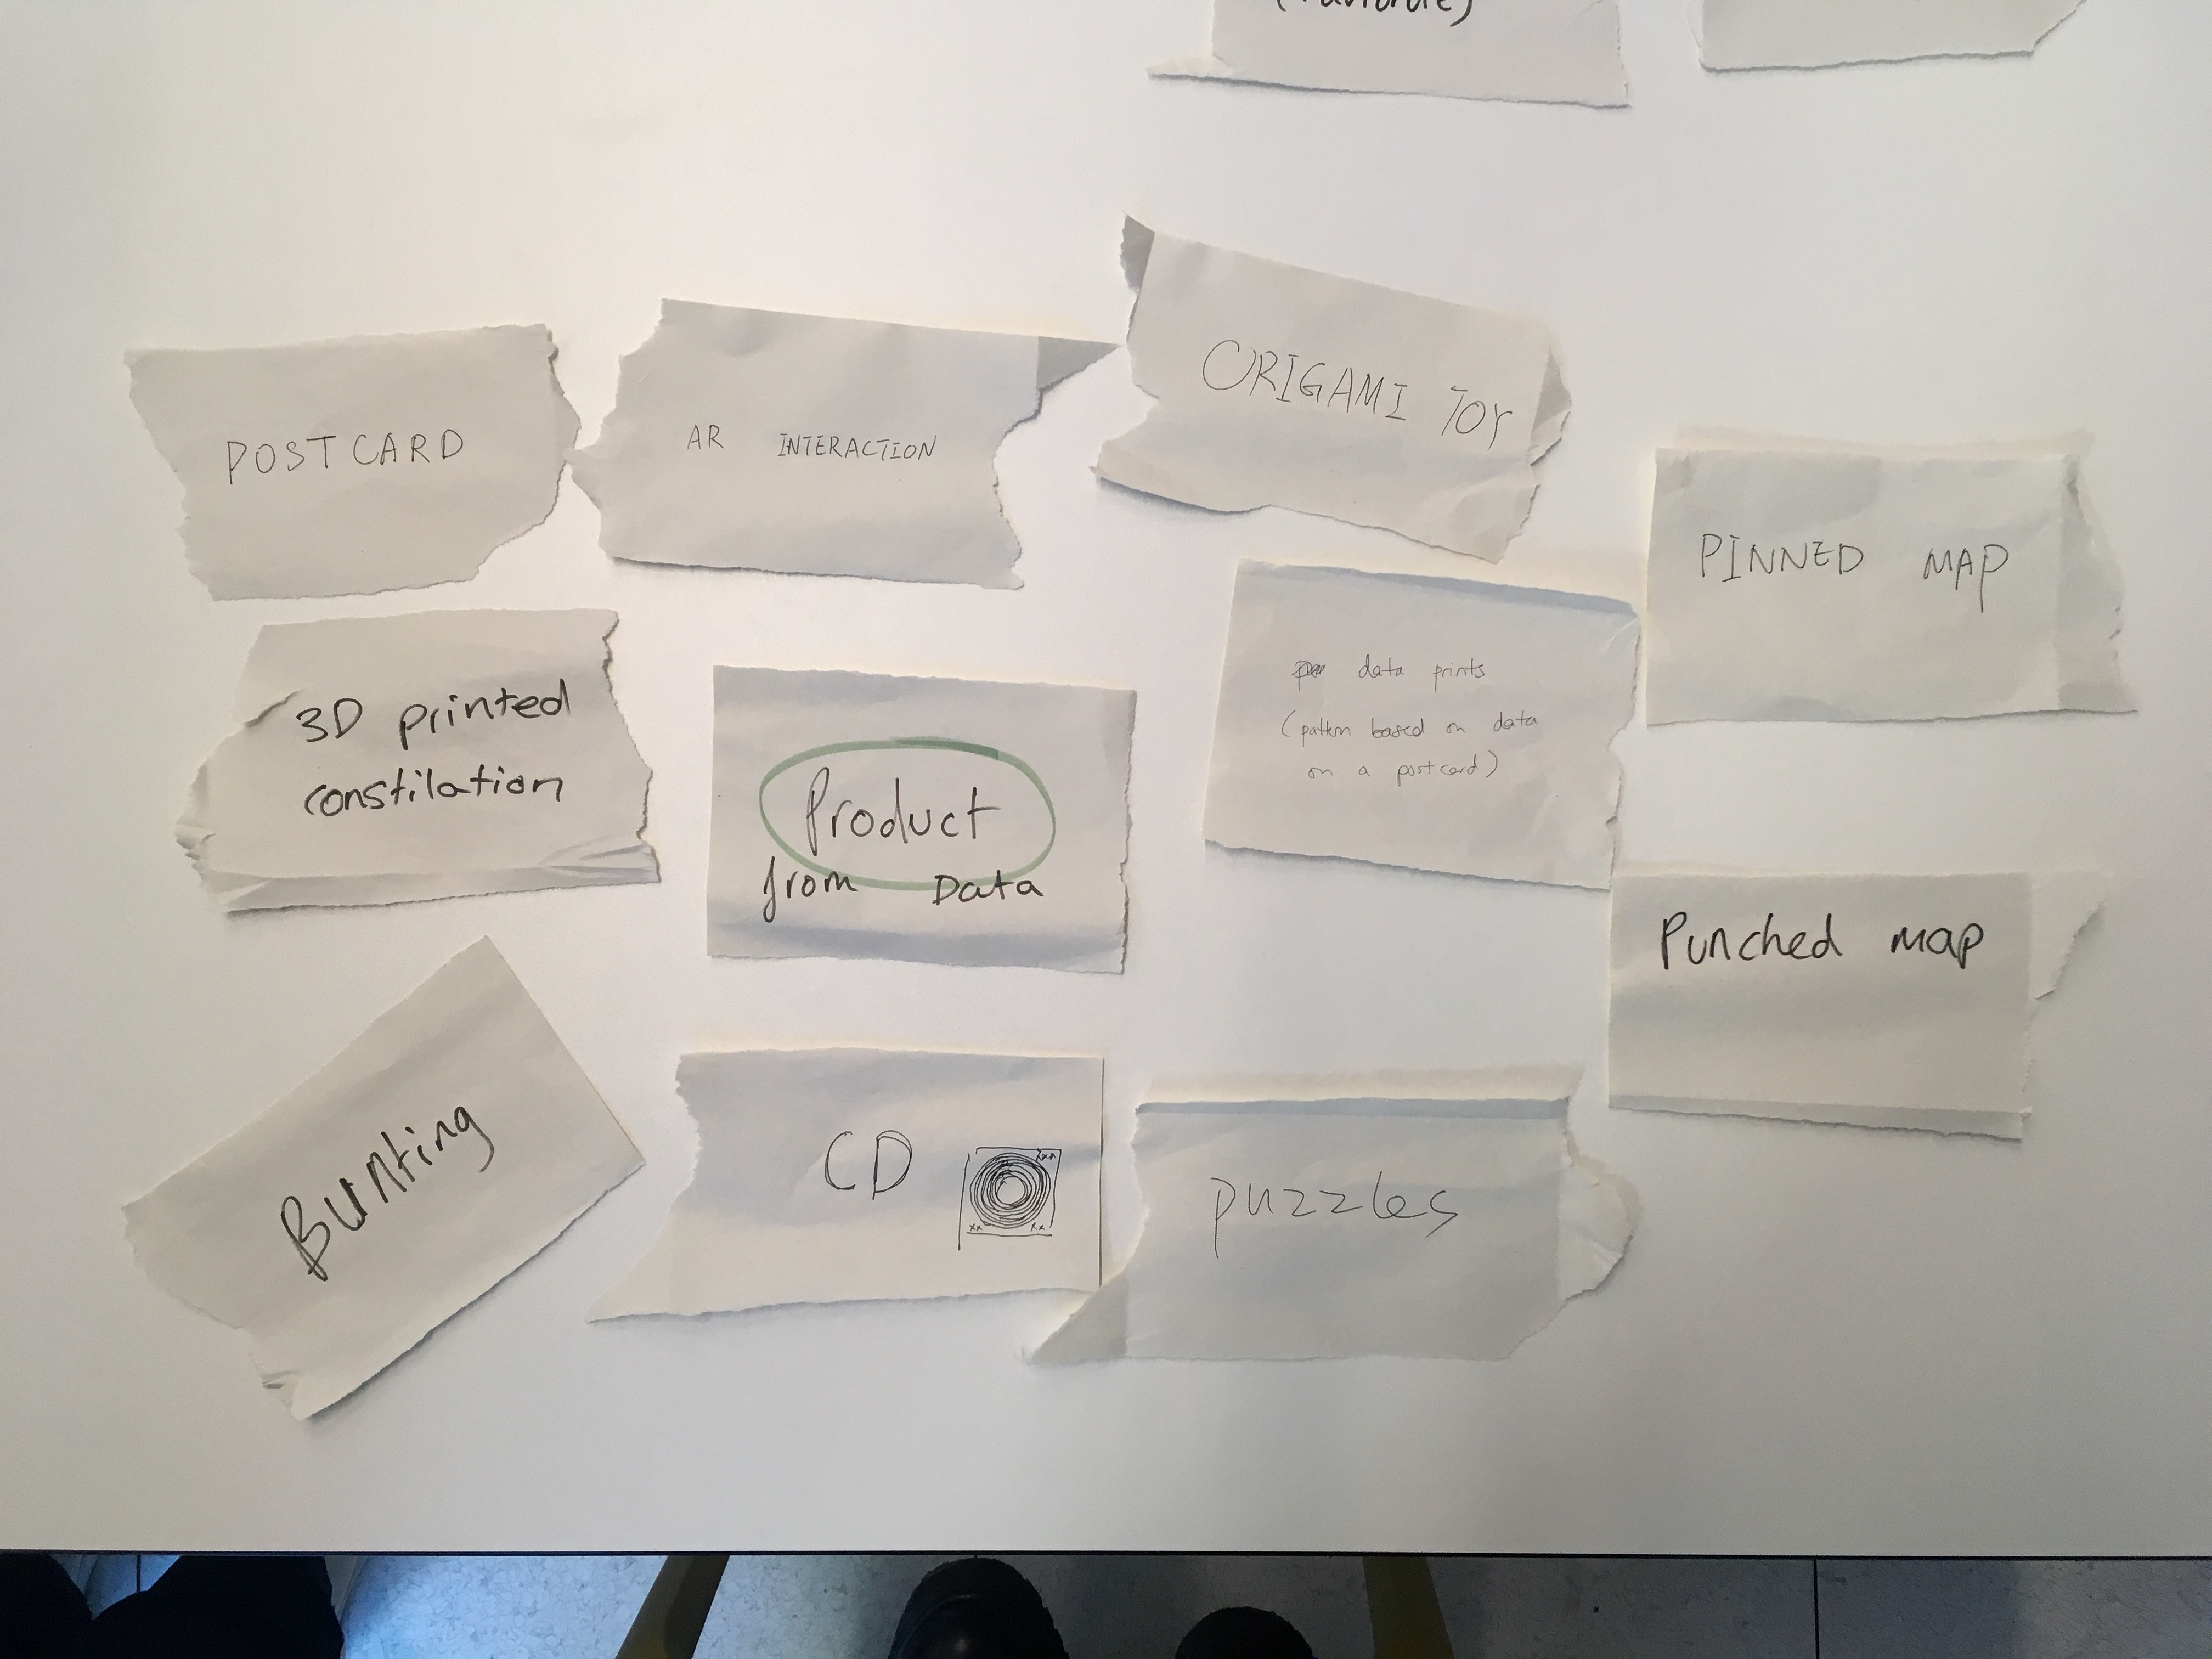 POSTCARD
AR INTERACTION
ORIGAMI TOY
PINNED MAP
3D printed
constilation
Product
from Data
data prints
(pattern based on data
on a postcard)
Punched map
Bunting
CD
xxx
xx xx
puzzles